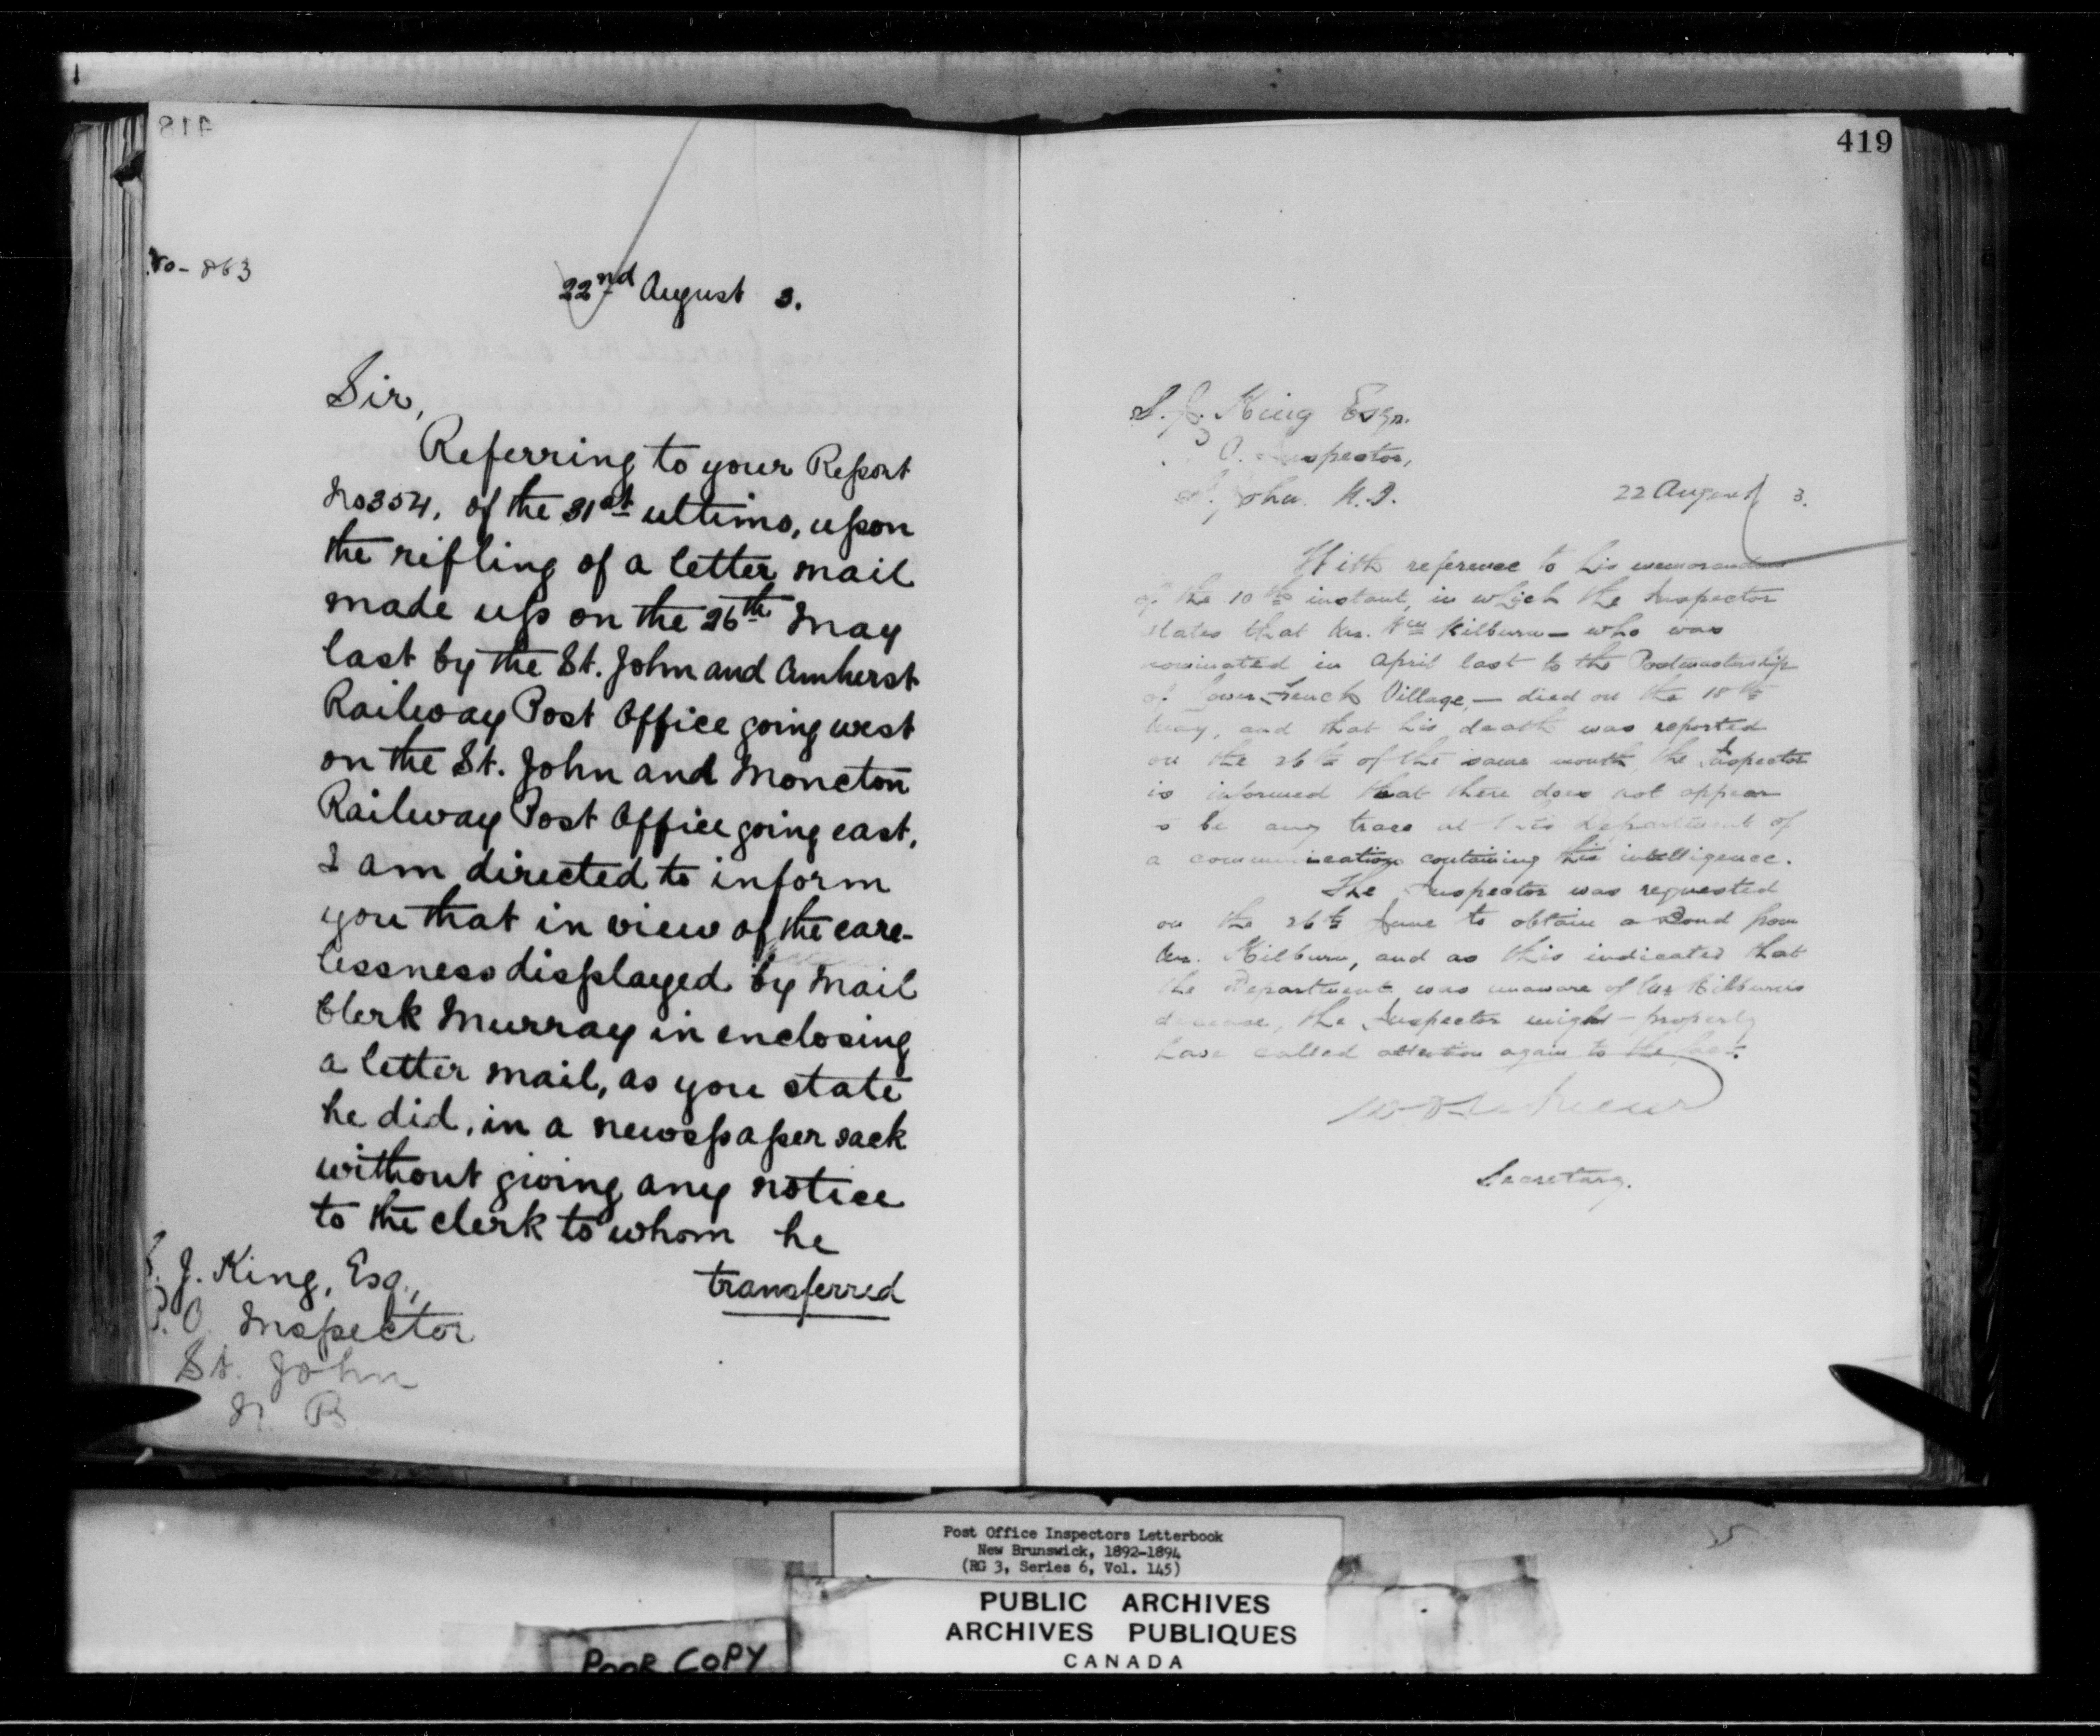 418
No - 863
22nd August 3.
Sir,
Referring to your Report
No 354, of the 31st ultimo, upon
the rifling of a letter mail
made up on the 26th May
last by the St. John and Amherst
Railway Post Office going west
on the St. John and Moncton
Railway Post Office going east,
I am directed to inform
you that in view of the care-
lessness displayed by Mail
Clerk Murray in enclosing
a letter mail, as you state
he did, in a newspaper sack
without giving any notice
to the clerk to whom he
transferred
S. J. King, Esq.,
P. O. Inspector
St. John
N. B
419
S. J. King Esqr.
P. O. Inspector,
St. John. N.B.
22 August 3.
With reference to his memorandum
of the 10th instant, in which the Inspector
states that Mr. Wm Kilburn - who was
nominated in April last to the Postmastership
of Lower French Village, - died on the 18th
May, and that his death was reported
on the 26th of the same month, the Inspector
is informed that there does not appear
to be any trace at this Department of
a communication containing this intelligence.
The Inspector was requested
on the 26th June to obtain a Bond from
Mr. Kilburn, and as this indicated that
the Department was unaware of Mr Kilburn's
decease, the Inspector might properly
have called attention again to the fact.
Secretary.
Post Office Inspectors Letterbook
New Brunswick, 1892-1894
(RG 3, Series 6, Vol. 145)
PUBLIC ARCHIVES
ARCHIVES PUBLIQUES
CANADA
POOR COPY